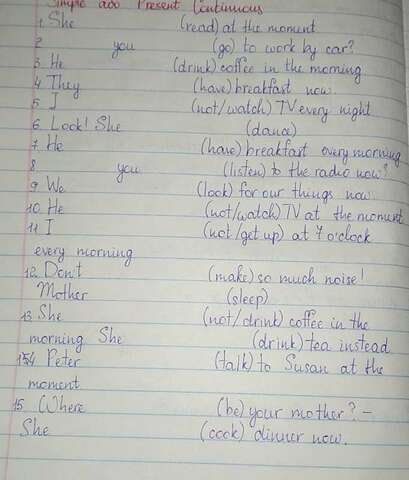 Simple або Present Continuous
1. She (read) at the moment
2 you (go) to work by car?
3. He (drink) coffee in the morning
4. They (have) breakfast now
5 I (not/watch) TV every night
6 Look! She (dance)
7 He (have) breakfast every morning
8 you (listen) to the radio now?
9 We (look) for our things now.
10. He (not/watch) TV at the moment
11 I (not/get up) at 7 o'clock
every morning
12. Don't (make) so much noise!
Mother (sleep)
13 She (not/drink) coffee in the
morning She (drink) tea instead
14 Peter (talk) to Susan at the
moment
15 Where (be) your mother? -
She (cook) dinner now.